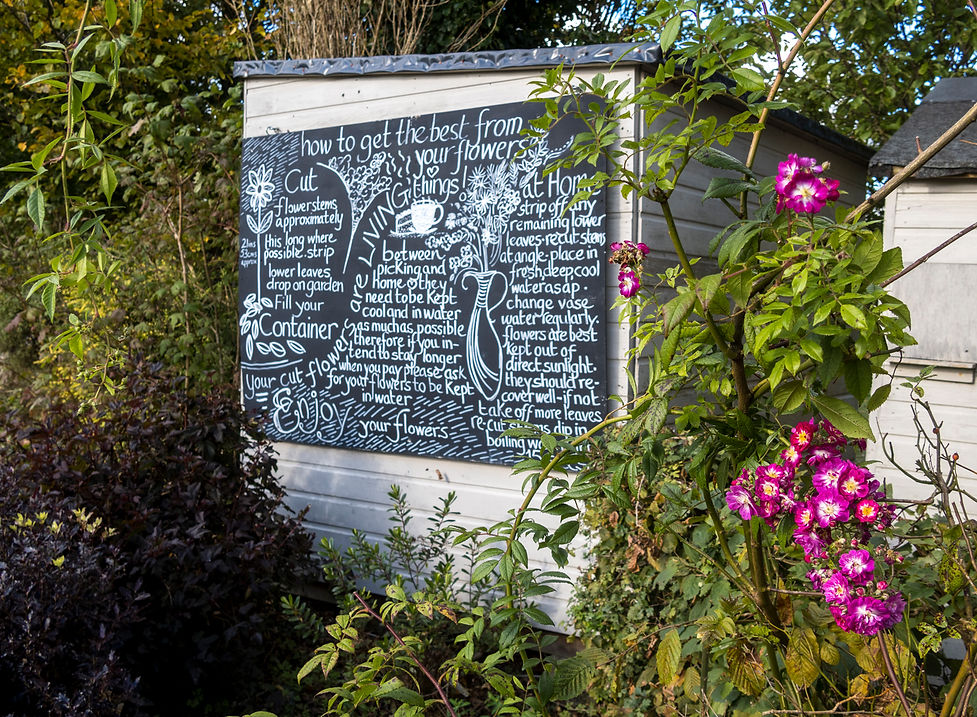 how to get the best from
your flowers
Cut
flower stems
approximately
this long where
possible. strip
lower leaves
drop on garden
21ins
53cms
approx
Fill your
Container
Your cut flowers are LIVING things!
between
picking and
Home they
need to be kept
cool and in water
as much as possible
therefore if you in-
tend to stay longer
when you pay please ask
for your flowers to be kept
in water
Enjoy
your flowers
at Home
strip off any
remaining lower
leaves. recut stems
at angle. place in
fresh deep cool
water asap.
change vase
water regularly.
flowers are best
kept out of
direct sunlight
they should re-
cover well - if not
take off more leaves
re-cut stems dip in
boiling